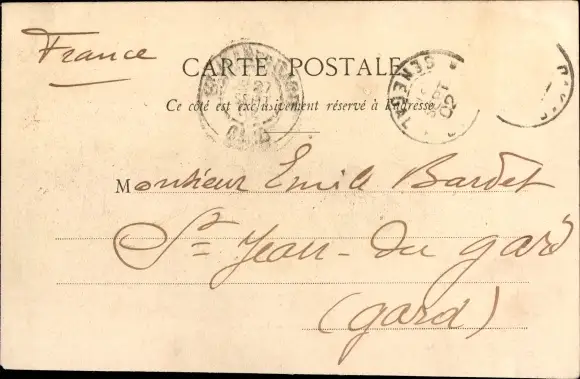 France
CARTE POSTALE
Ce côté est exclusivement réservé à l'adresse
Monsieur Emile Bardet
St Jean-du gard
(gard)
27
SEPT
02
SENEGAL
GARD